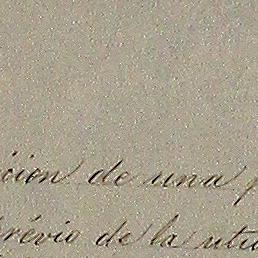 icion de una p
révio de la utu